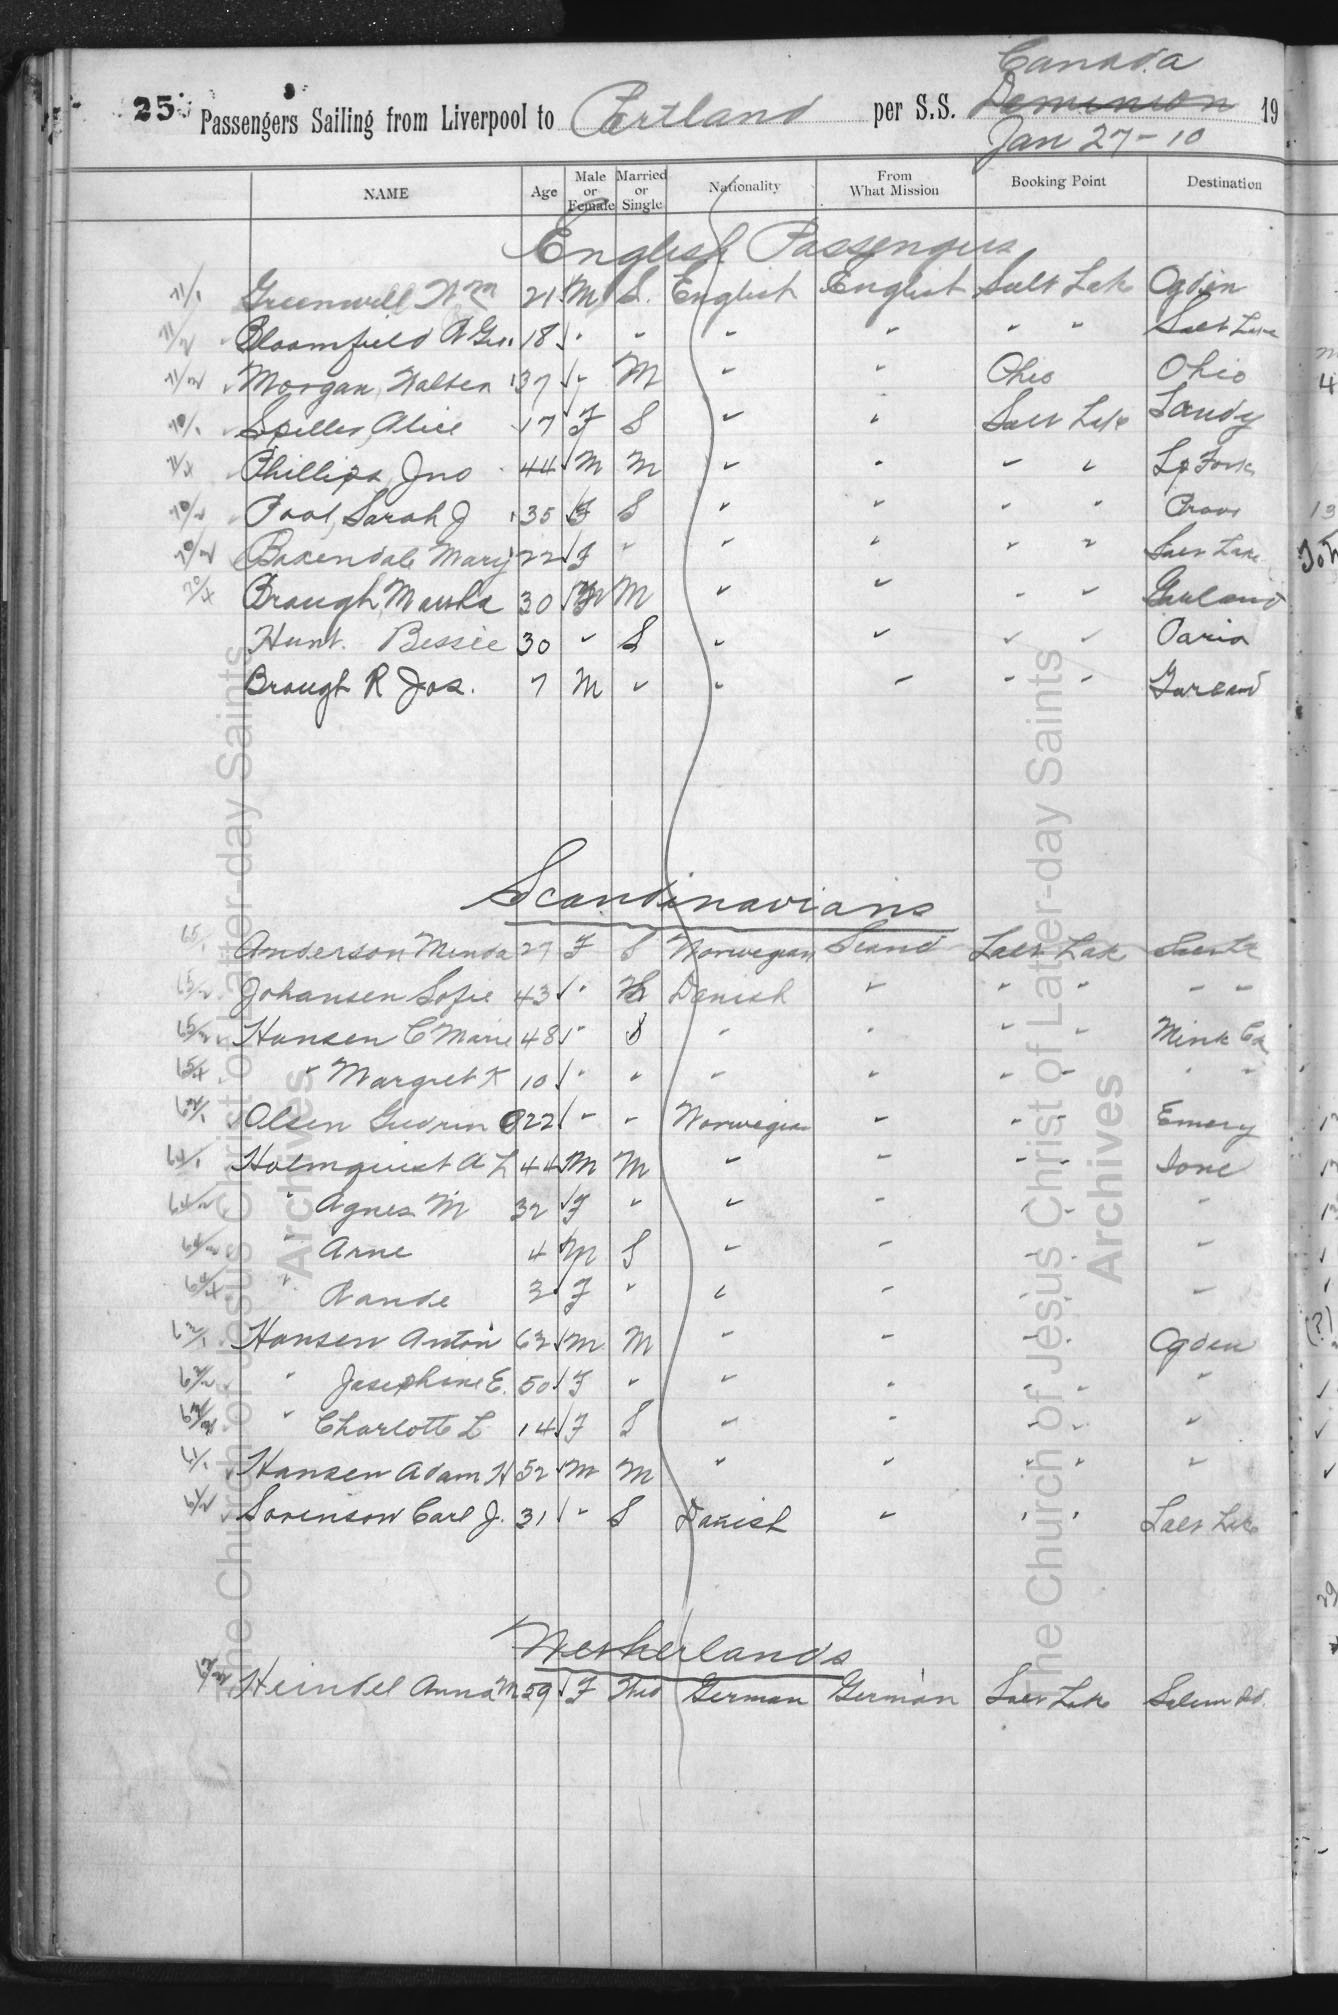 Canada
25 Passengers Sailing from Liverpool to Portland per S.S. Dominion 19
Jan 27-10
NAME Age Male or Female Married or Single Nationality From What Mission Booking Point Destination
English Passengers
71/1 Greenwell Wm 21 M S. English English Salt Lake Ogden
71/2 Bloomfield A Geo. 18 " " " " " " Salt Lake
71/3 Morgan, Walter 37 " M " " Ohio Ohio
70/1 Spiller, Alice 17 F S " " Salt Lake Sandy
71/4 Phillips, Jno 44 M M " " " " Sp Fork
70/2 Pool, Sarah J 35 F S " " " " Provo
70/3 Baxendale Mary 22 F " " " " " Salt Lake
70/4 Brough, Martha 30 F M " " " " Garland
Hunt. Bessie 30 " S " " " " Paris
Brough R Jos. 7 M " " " " " Garland
Scandinavians
65/1 Anderson Minda 27 F S Norwegian Scand Salt Lake Salt Lk
65/2 Johansen Sofie 43 " M Danish " " " " "
65/3 Hansen C Marie 48 " S " " " " Mink Ck
65/4 " Margret K 10 " " " " " " " "
62/1 Olsen Gudrun O 22 " " Norwegian " " " Emery
64/1 Holmquist A L 44 M M " " " " Ione
64/2 " Agnes M 32 F " " " " " "
64/3 " Arne 4 M S " " " " "
64/4 " Rande 3 F " " " " " "
63/1 Hansen Anton 63 M M " " " " Ogden
63/2 " Josephine E. 50 F " " " " " "
63/3 " Charlotte L 14 F S " " " " "
61/1 Hansen Adam H 52 M M " " " " "
61/2 Sorenson Carl J. 31 " S Danish " " " Salt Lake
Netherlands
62/2 Heindel Anna M 59 F Wid German German Salt Lake Salem
The Church of Jesus Christ of Latter-day Saints
Archives
The Church of Jesus Christ of Latter-day Saints
Archives